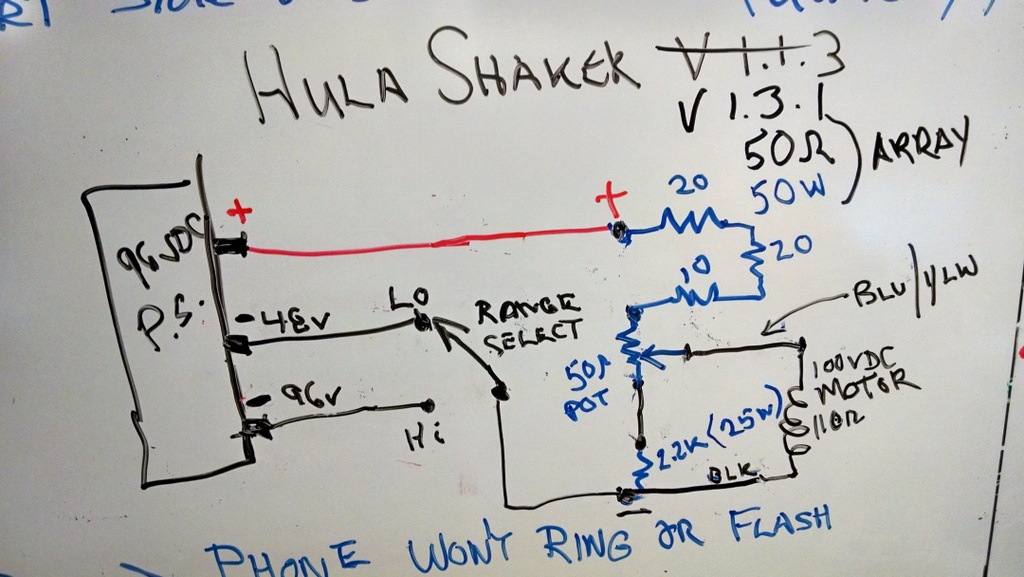 HULA SHAKER V 1.1.3
V 1.3.1
50Ω
50W
ARRAY
+
+
20
20
10
P.S.
- 48V
LO
RANGE
SELECT
BLU/YLW
50Ω
POT
100VDC
MOTOR
110Ω
- 96V
Hi
2.2K (25W)
BLK
-
PHONE WON'T RING OR FLASH